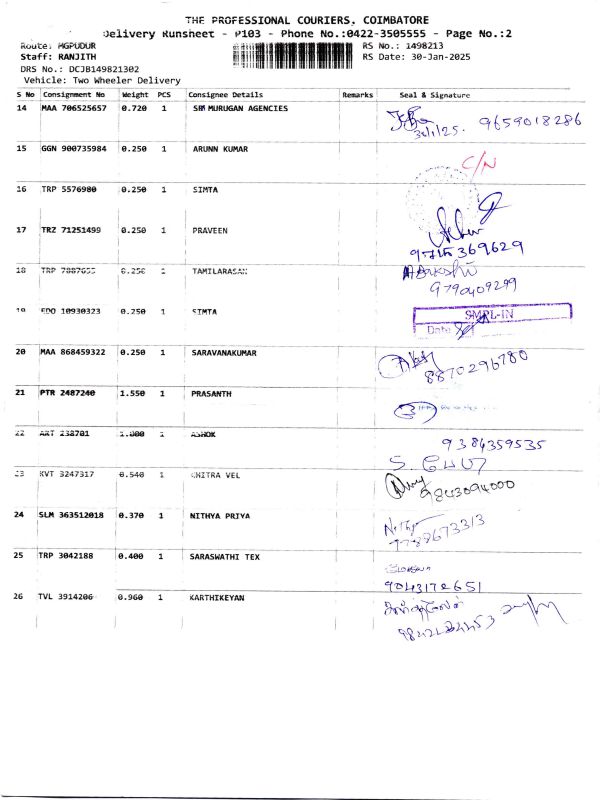 THE PROFESSIONAL COURIERS, COIMBATORE
Delivery Runsheet - P103 - Phone No.:0422-3505555 - Page No.:2
Route: MGPUDUR RS No.: 1498213
Staff: RANJITH RS Date: 30-Jan-2025
DRS No.: DCJB149821302
Vehicle: Two Wheeler Delivery
S No Consignment No Weight PCS Consignee Details Remarks Seal & Signature
14 MAA 706525657 0.720 1 SRI MURUGAN AGENCIES
9659018286
15 GGN 900735984 0.250 1 ARUNN KUMAR
C/N
16 TRP 5576980 0.250 1 SIMTA
17 TRZ 71251499 0.250 1 PRAVEEN
9715369629
18 TRP 7887655 0.250 1 TAMILARASAN
9790409299
19 EDO 10930323 0.250 1 SIMTA
SMPL-IN
Date
20 MAA 868459322 0.250 1 SARAVANAKUMAR
8870296780
21 PTR 2487240 1.550 1 PRASANTH
22 138701 1.000 1 ASHOK
9384359535
23 KVT 3247317 0.540 1 CHITRA VEL
9843094000
24 SLM 363512018 0.370 1 NITHYA PRIYA
9788673313
25 TRP 3042188 0.400 1 SARASWATHI TEX
9043172651
26 TVL 3914206 0.960 1 KARTHIKEYAN